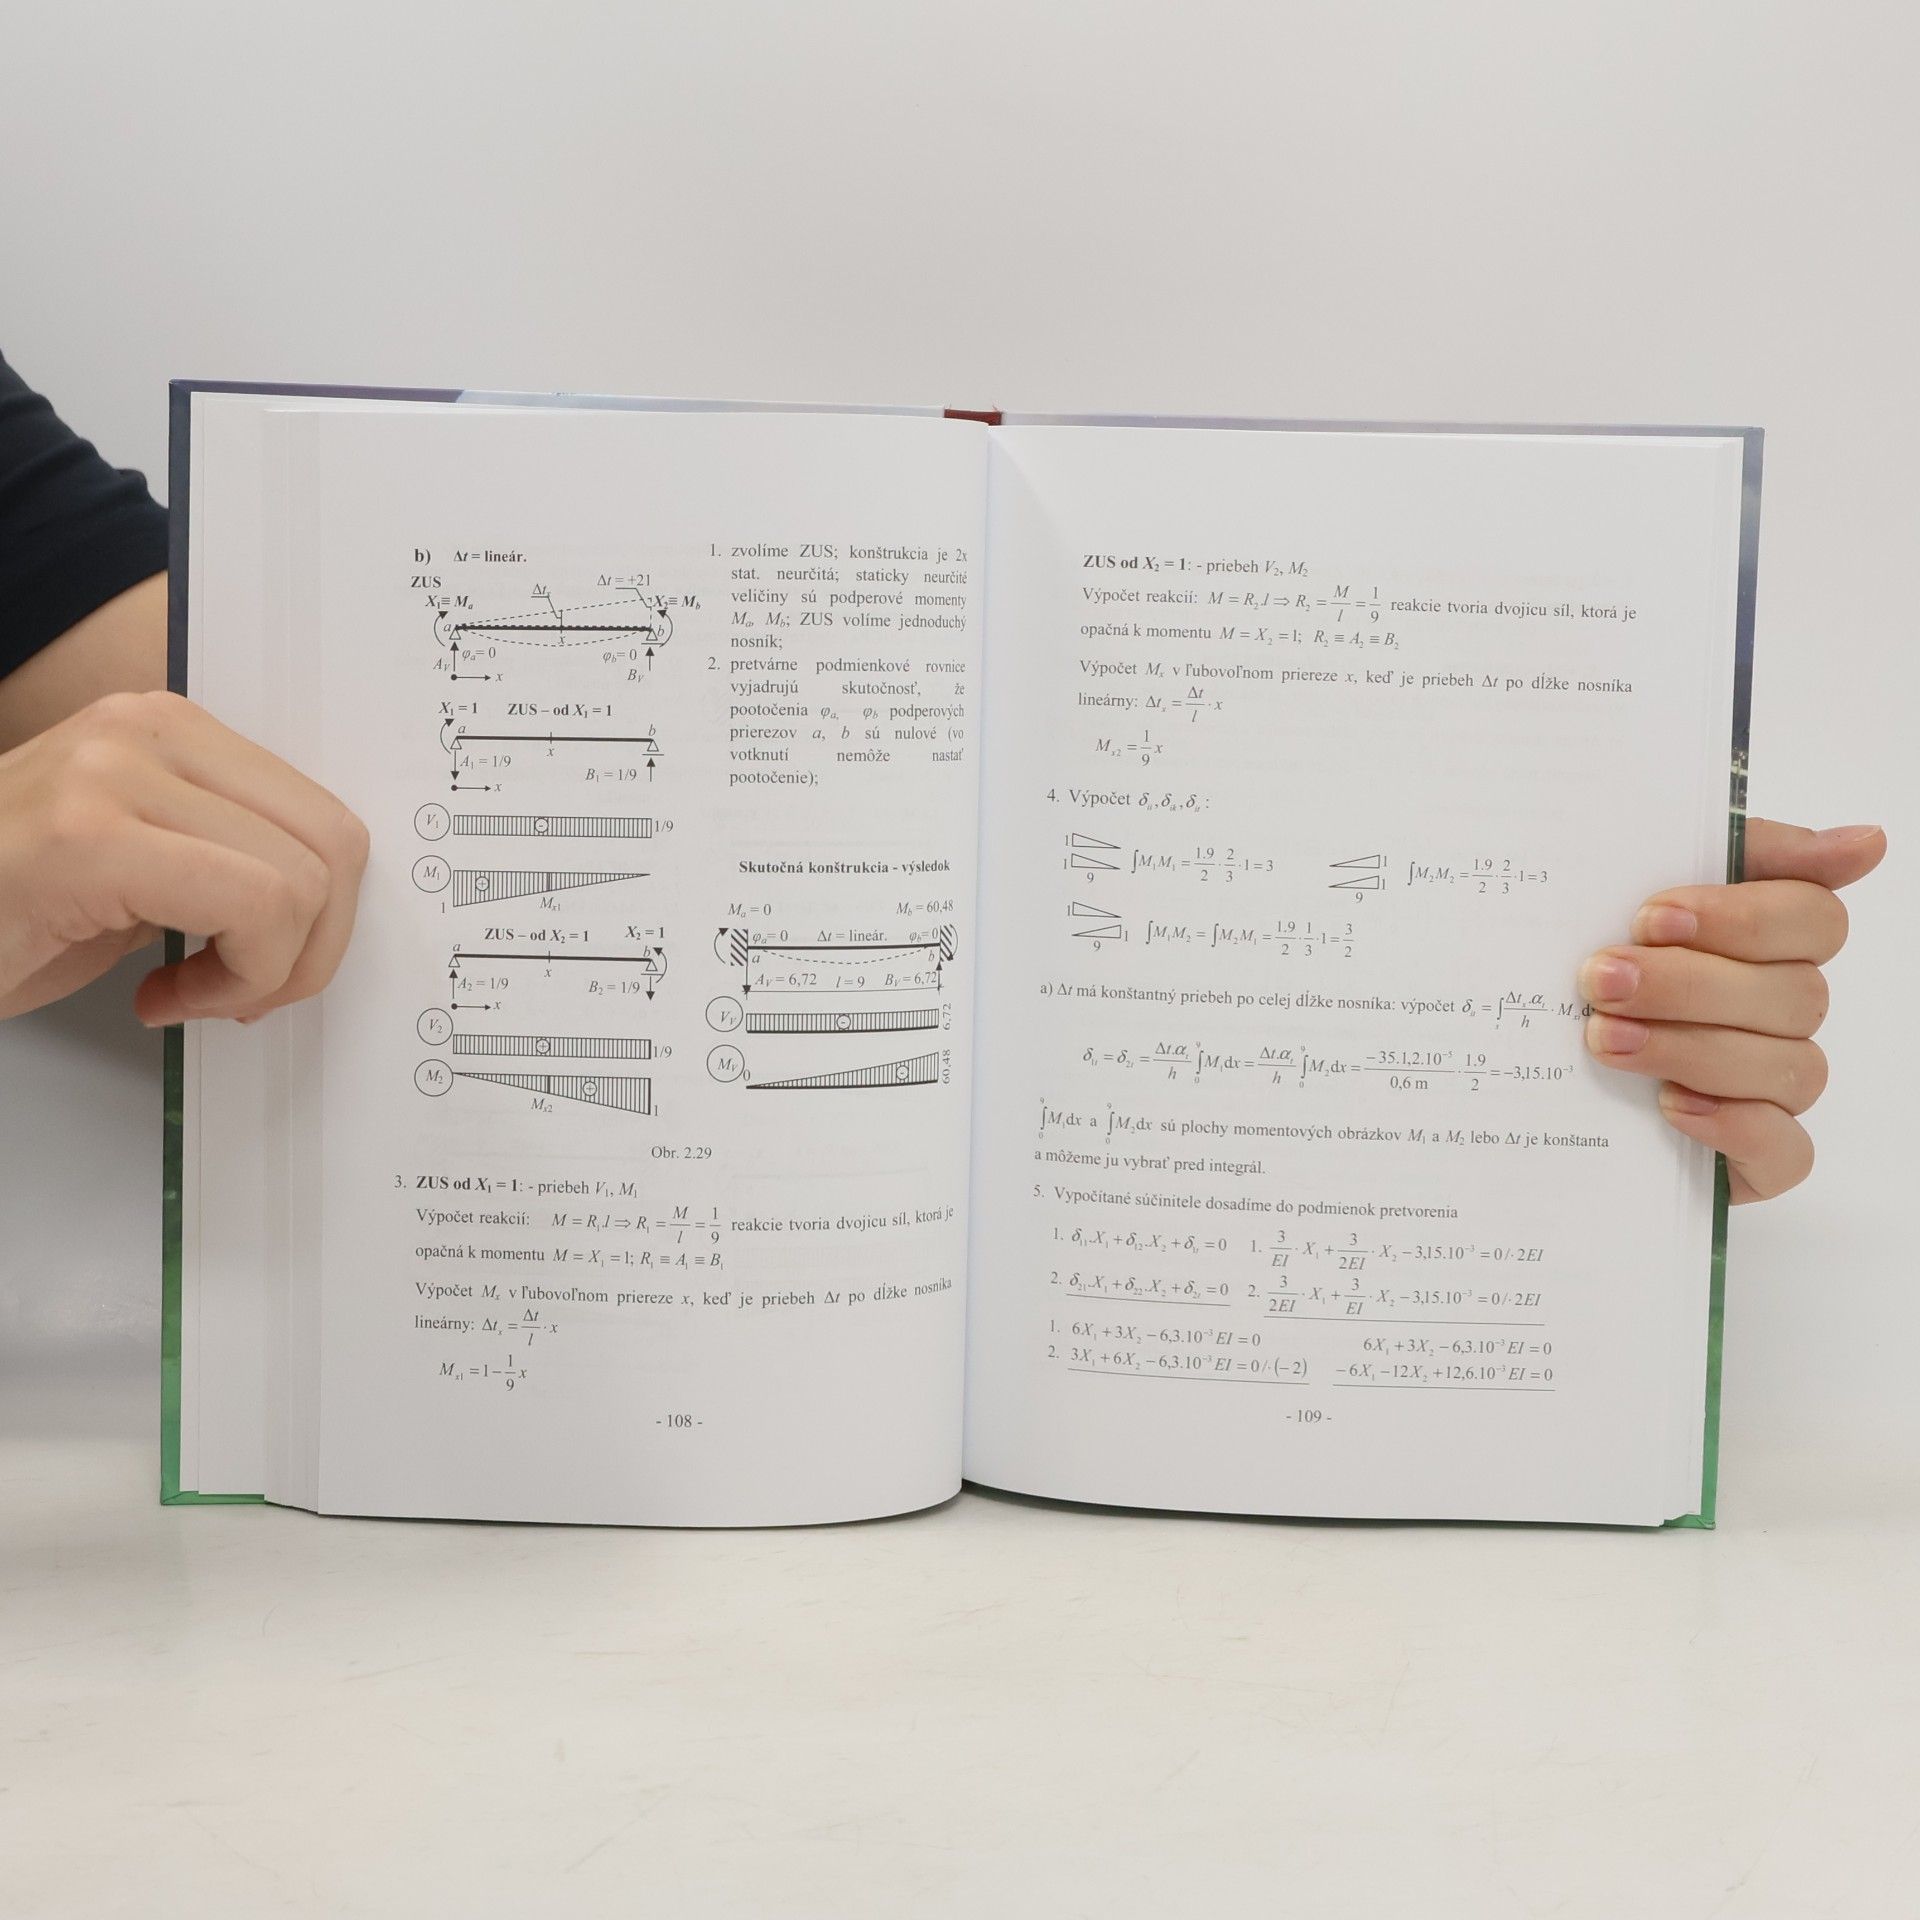 b) Δt = lineár.
ZUS
Δt = +21
Δtₓ
X₁≡ Mₐ
X₂≡ M_b
a
x
b
φₐ= 0
φ_b= 0
A_V
B_V
x
X₁ = 1 ZUS – od X₁ = 1
a
b
x
A₁ = 1/9
B₁ = 1/9
x
V₁ - 1/9
M₁ +
1
Mₓ₁
ZUS – od X₂ = 1 X₂ = 1
a
b
x
A₂ = 1/9
B₂ = 1/9
x
V₂ + 1/9
M₂ +
Mₓ₂
1
1. zvolíme ZUS; konštrukcia je 2x
stat. neurčitá; staticky neurčité
veličiny sú podperové momenty
Mₐ, M_b; ZUS volíme jednoduchý
nosník;
2. pretvárne podmienkové rovnice
vyjadrujú skutočnosť, že
pootočenia φₐ, φ_b podperových
prierezov a, b sú nulové (vo
votknutí nemôže nastať
pootočenie);
Skutočná konštrukcia - výsledok
Mₐ = 0 M_b = 60,48
φₐ= 0 Δt = lineár. φ_b= 0
a
b
A_V = 6,72 l = 9 B_V = 6,72
V_V - 6,72
M_V 0 - 60,48
Obr. 2.29
3. ZUS od X₁ = 1: - priebeh V₁, M₁
Výpočet reakcií: M = R₁.l ⇒ R₁ = M/l = 1/9 reakcie tvoria dvojicu síl, ktorá je
opačná k momentu M = X₁ = 1; R₁ ≡ A₁ ≡ B₁
Výpočet Mₓ v ľubovoľnom priereze x, keď je priebeh Δt po dĺžke nosníka
lineárny: Δtₓ = Δt/l · x
Mₓ₁ = 1 – 1/9 x
- 108 -
ZUS od X₂ = 1: - priebeh V₂, M₂
Výpočet reakcií: M = R₂.l ⇒ R₂ = M/l = 1/9 reakcie tvoria dvojicu síl, ktorá je
opačná k momentu M = X₂ = 1; R₂ ≡ A₂ ≡ B₂
Výpočet Mₓ v ľubovoľnom priereze x, keď je priebeh Δt po dĺžke nosníka
lineárny: Δtₓ = Δt/l · x
Mₓ₂ = 1/9 x
4. Výpočet δᵢᵢ, δᵢₖ, δᵢₜ :
1 1 9 ∫M₁M₁ = 1.9/2 · 2/3 · 1 = 3 1 1 9 ∫M₂M₂ = 1.9/2 · 2/3 · 1 = 3
1 1 9 ∫M₁M₂ = ∫M₂M₁ = 1.9/2 · 1/3 · 1 = 3/2
a) Δt má konštantný priebeh po celej dĺžke nosníka: výpočet δᵢₜ = ∫ Δtₓ.αₜ/h · Mₓᵢ d
δ₁ₜ = δ₂ₜ = Δt.αₜ/h ∫₀⁹ M₁dx = Δt.αₜ/h ∫₀⁹ M₂dx = –35.1,2.10⁻⁵/0,6 m · 1.9/2 = –3,15.10⁻³
∫₀⁹ M₁dx a ∫₀⁹ M₂dx sú plochy momentových obrázkov M₁ a M₂ lebo Δt je konštanta
a môžeme ju vybrať pred integrál.
5. Vypočítané súčinitele dosadíme do podmienok pretvorenia
1. δ₁₁.X₁ + δ₁₂.X₂ + δ₁ₜ = 0 1. 3/EI · X₁ + 3/2EI · X₂ – 3,15.10⁻³ = 0/· 2EI
2. δ₂₁.X₁ + δ₂₂.X₂ + δ₂ₜ = 0 2. 3/2EI · X₁ + 3/EI · X₂ – 3,15.10⁻³ = 0/· 2EI
1. 6X₁ + 3X₂ – 6,3.10⁻³ EI = 0 6X₁ + 3X₂ – 6,3.10⁻³ EI = 0
2. 3X₁ + 6X₂ – 6,3.10⁻³ EI = 0/·(–2) –6X₁ –12X₂ +12,6.10⁻³ EI = 0
- 109 -